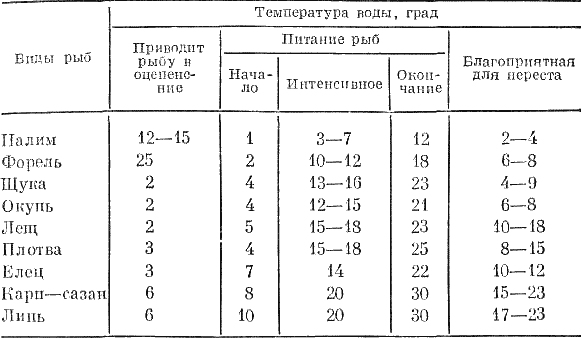 Температура воды, град
Виды рыб
Приводит рыбу в оцепене-
ние
Питание рыб
Нача-
ло
Интенсивное
Окон-
чание
Благоприятная
для нереста
Налим 12—15 1 3—7 12 2—4
Форель 25 2 10—12 18 6—8
Щука 2 4 13—16 23 4—9
Окунь 2 4 12—15 21 6—8
Лещ 2 5 15—18 23 10—18
Плотва 3 4 15—18 25 8—15
Елец 3 7 14 22 10—12
Карп—сазан 6 8 20 30 15—23
Линь 6 10 20 30 17—23